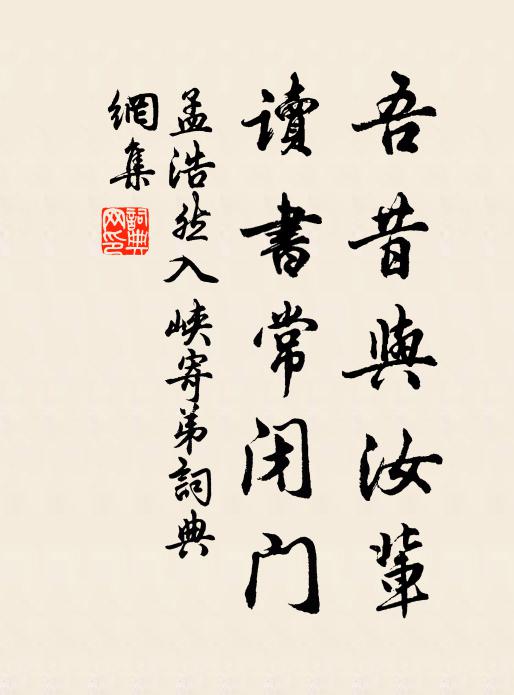 吾昔與汝輩
讀書常閉門
孟浩然入峽寄弟詞典
網集
詞典
网印